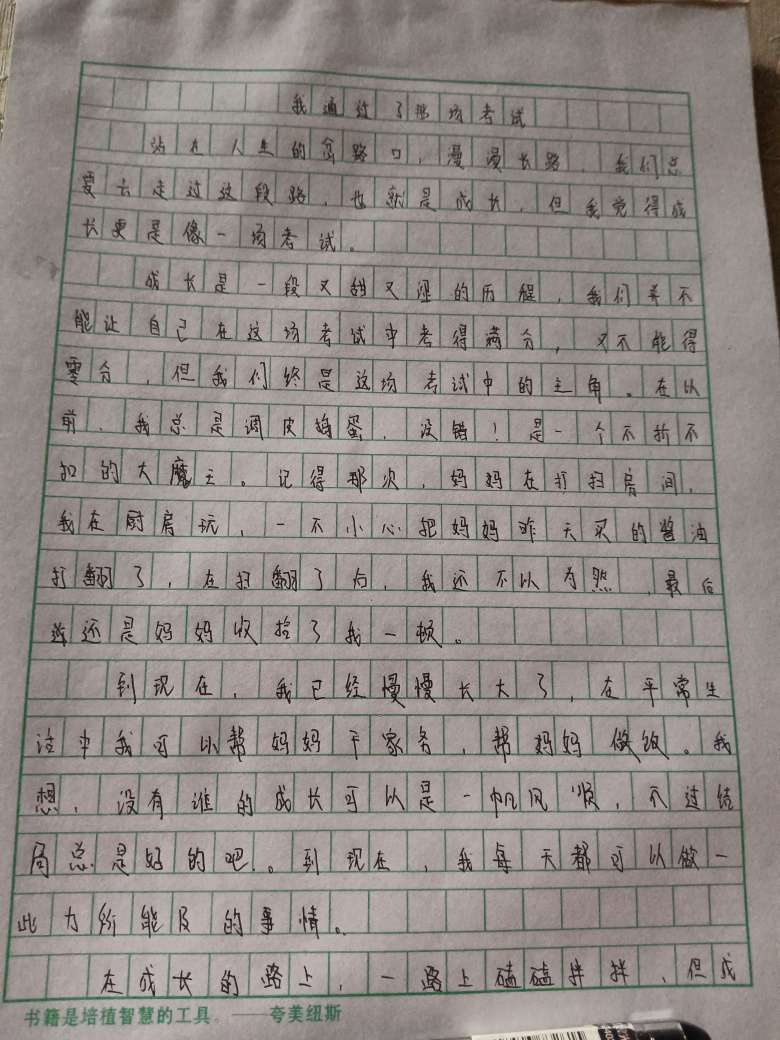 我通过了那场考试
站在人生的岔路口，漫漫长路，我们总
要去走过这段路，也就是成长，但我觉得成
长更是像一场考试。
成长是一段又甜又涩的历程，我们并不
能让自己在这场考试中考得满分，又不能得
零分，但我们终是这场考试中的主角。在以
前，我总是调皮捣蛋，没错！是一个不折不
扣的大魔王。记得那次，妈妈在打扫房间，
我在厨房玩，一不小心把妈妈昨天买的酱油
打翻了，在打翻了后，我还不以为然，最后
还是妈妈收拾了我一顿。
到现在，我已经慢慢长大了，在平常生
活中我可以帮妈妈干家务，帮妈妈做饭。我
想，没有谁的成长可以是一帆风顺，不过结
局总是好的吧。到现在，我每天都可以做一
此力所能及的事情。
在成长的路上，一路上磕磕拌拌，但成
书籍是培植智慧的工具。——夸美纽斯